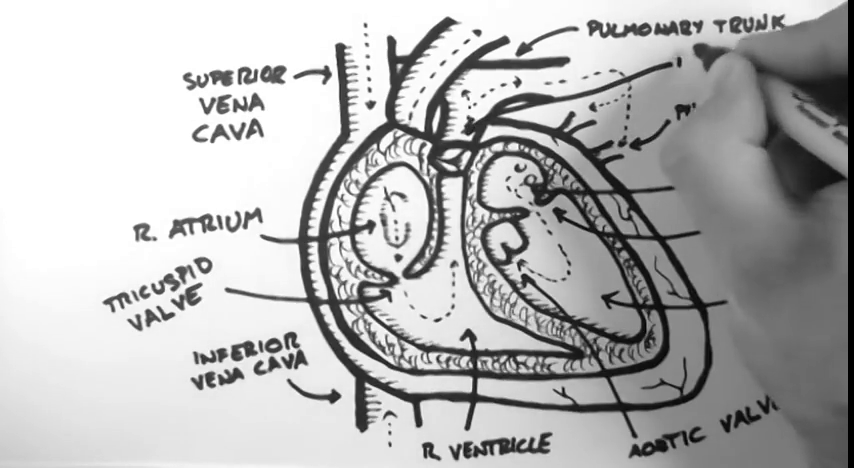 PULMONARY TRUNK
SUPERIOR
VENA
CAVA
R. ATRIUM
TRICUSPID
VALVE
INFERIOR
VENA CAVA
R VENTRICLE
AORTIC